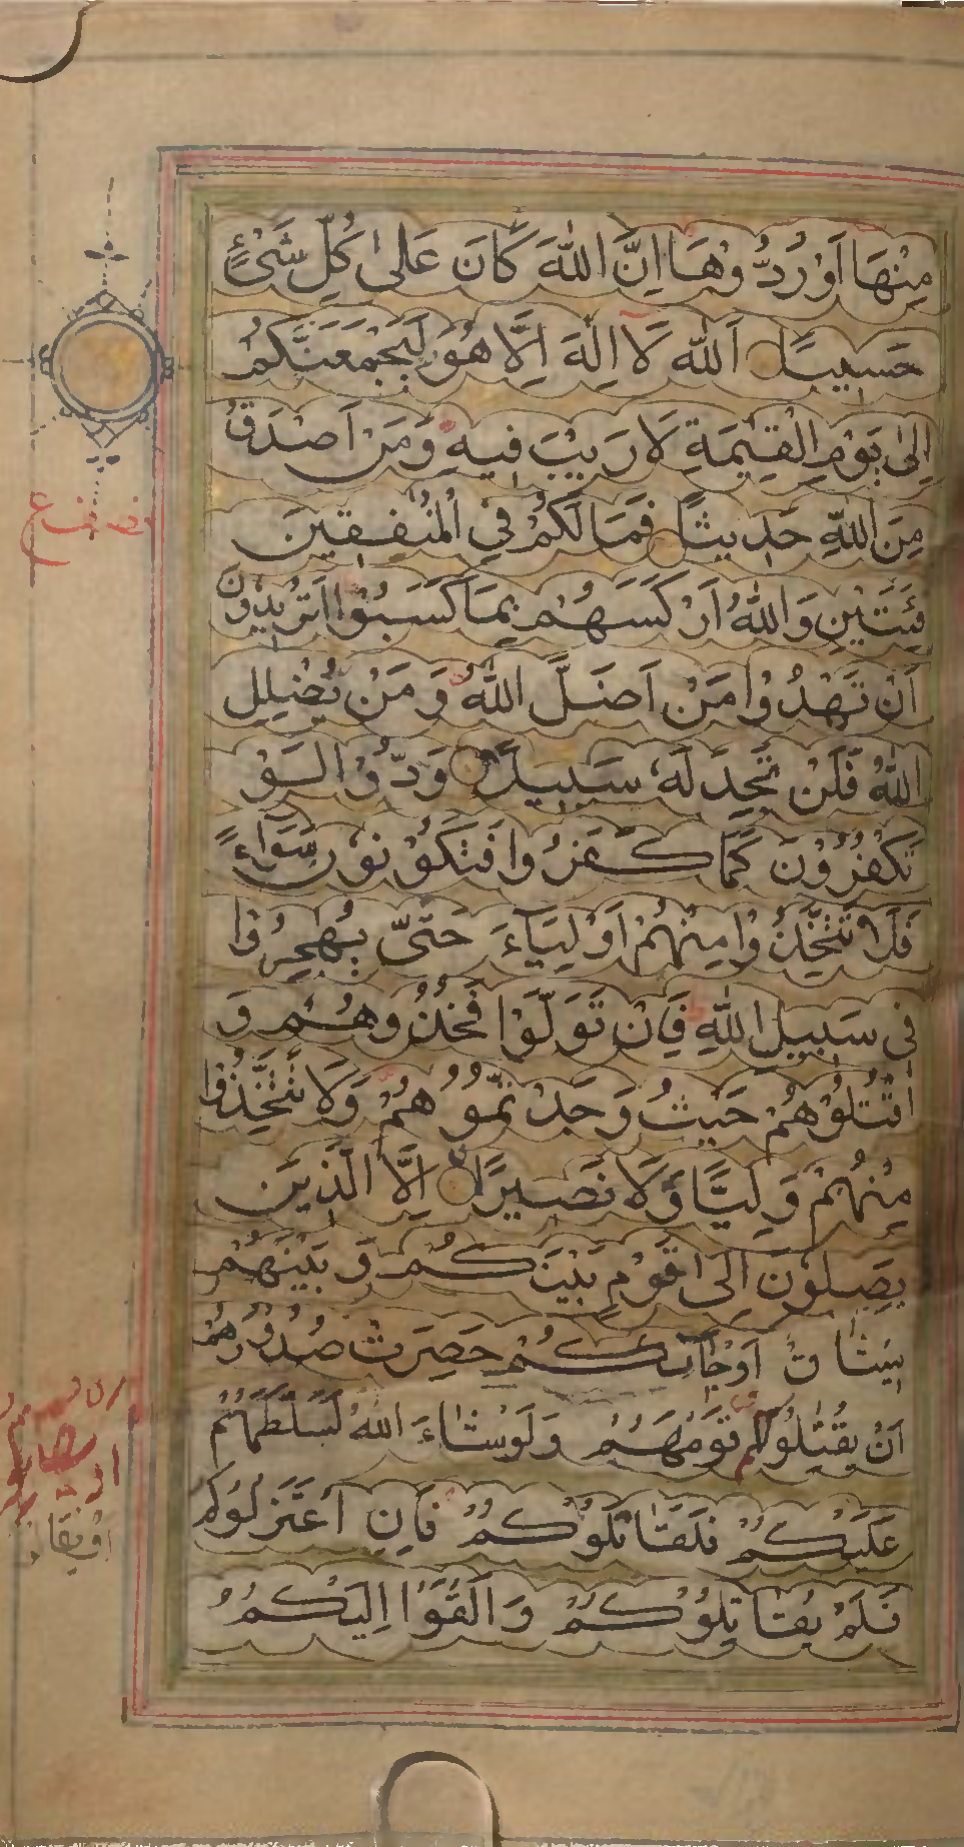 مِنْهَا اَوْ رُدُّوْهَا اِنَّ اللّٰهَ كَانَ عَلٰى كُلِّ شَىْءٍ
حَسِيبًا اَللّٰهُ لَا اِلٰهَ اِلَّا هُوَ لَيَجْمَعَنَّكُمْ
اِلٰى يَوْمِ الْقِيٰمَةِ لَا رَيْبَ فِيهِ وَمَنْ اَصْدَقُ
مِنَ اللّٰهِ حَدِيثًا فَمَا لَكُمْ فِي الْمُنٰفِقِينَ
فِئَتَيْنِ وَاللّٰهُ اَرْكَسَهُمْ بِمَا كَسَبُوْا اَتُرِيْدُوْنَ
اَنْ تَهْدُوْا مَنْ اَضَلَّ اللّٰهُ وَمَنْ يُضْلِلِ
اللّٰهُ فَلَنْ تَجِدَ لَهُ سَبِيلًا وَدُّوْا لَوْ
تَكْفُرُوْنَ كَمَا كَفَرُوْا فَتَكُوْنُوْنَ سَوَاءً
فَلَا تَتَّخِذُوْا مِنْهُمْ اَوْلِيَاءَ حَتّٰى يُهَاجِرُوْا
فِى سَبِيلِ اللّٰهِ فَاِنْ تَوَلَّوْا فَخُذُوْهُمْ وَ
اقْتُلُوْهُمْ حَيْثُ وَجَدْتُمُوْهُمْ وَلَا تَتَّخِذُوْا
مِنْهُمْ وَلِيًّا وَلَا نَصِيرًا اِلَّا الَّذِيْنَ
يَصِلُوْنَ اِلٰى قَوْمٍ بَيْنَكُمْ وَبَيْنَهُمْ
مِيْثَاقٌ اَوْ جَاؤُكُمْ حَصِرَتْ صُدُوْرُهُمْ
اَنْ يُقٰتِلُوْكُمْ قَوْمَهُمْ وَلَوْ شَاءَ اللّٰهُ لَسَلَّطَهُمْ
عَلَيْكُمْ فَلَقٰاتَلُوْكُمْ فَاِنِ اعْتَزَلُوْكُمْ
فَلَمْ يُقٰاتِلُوْكُمْ وَاَلْقَوْا اِلَيْكُمُ